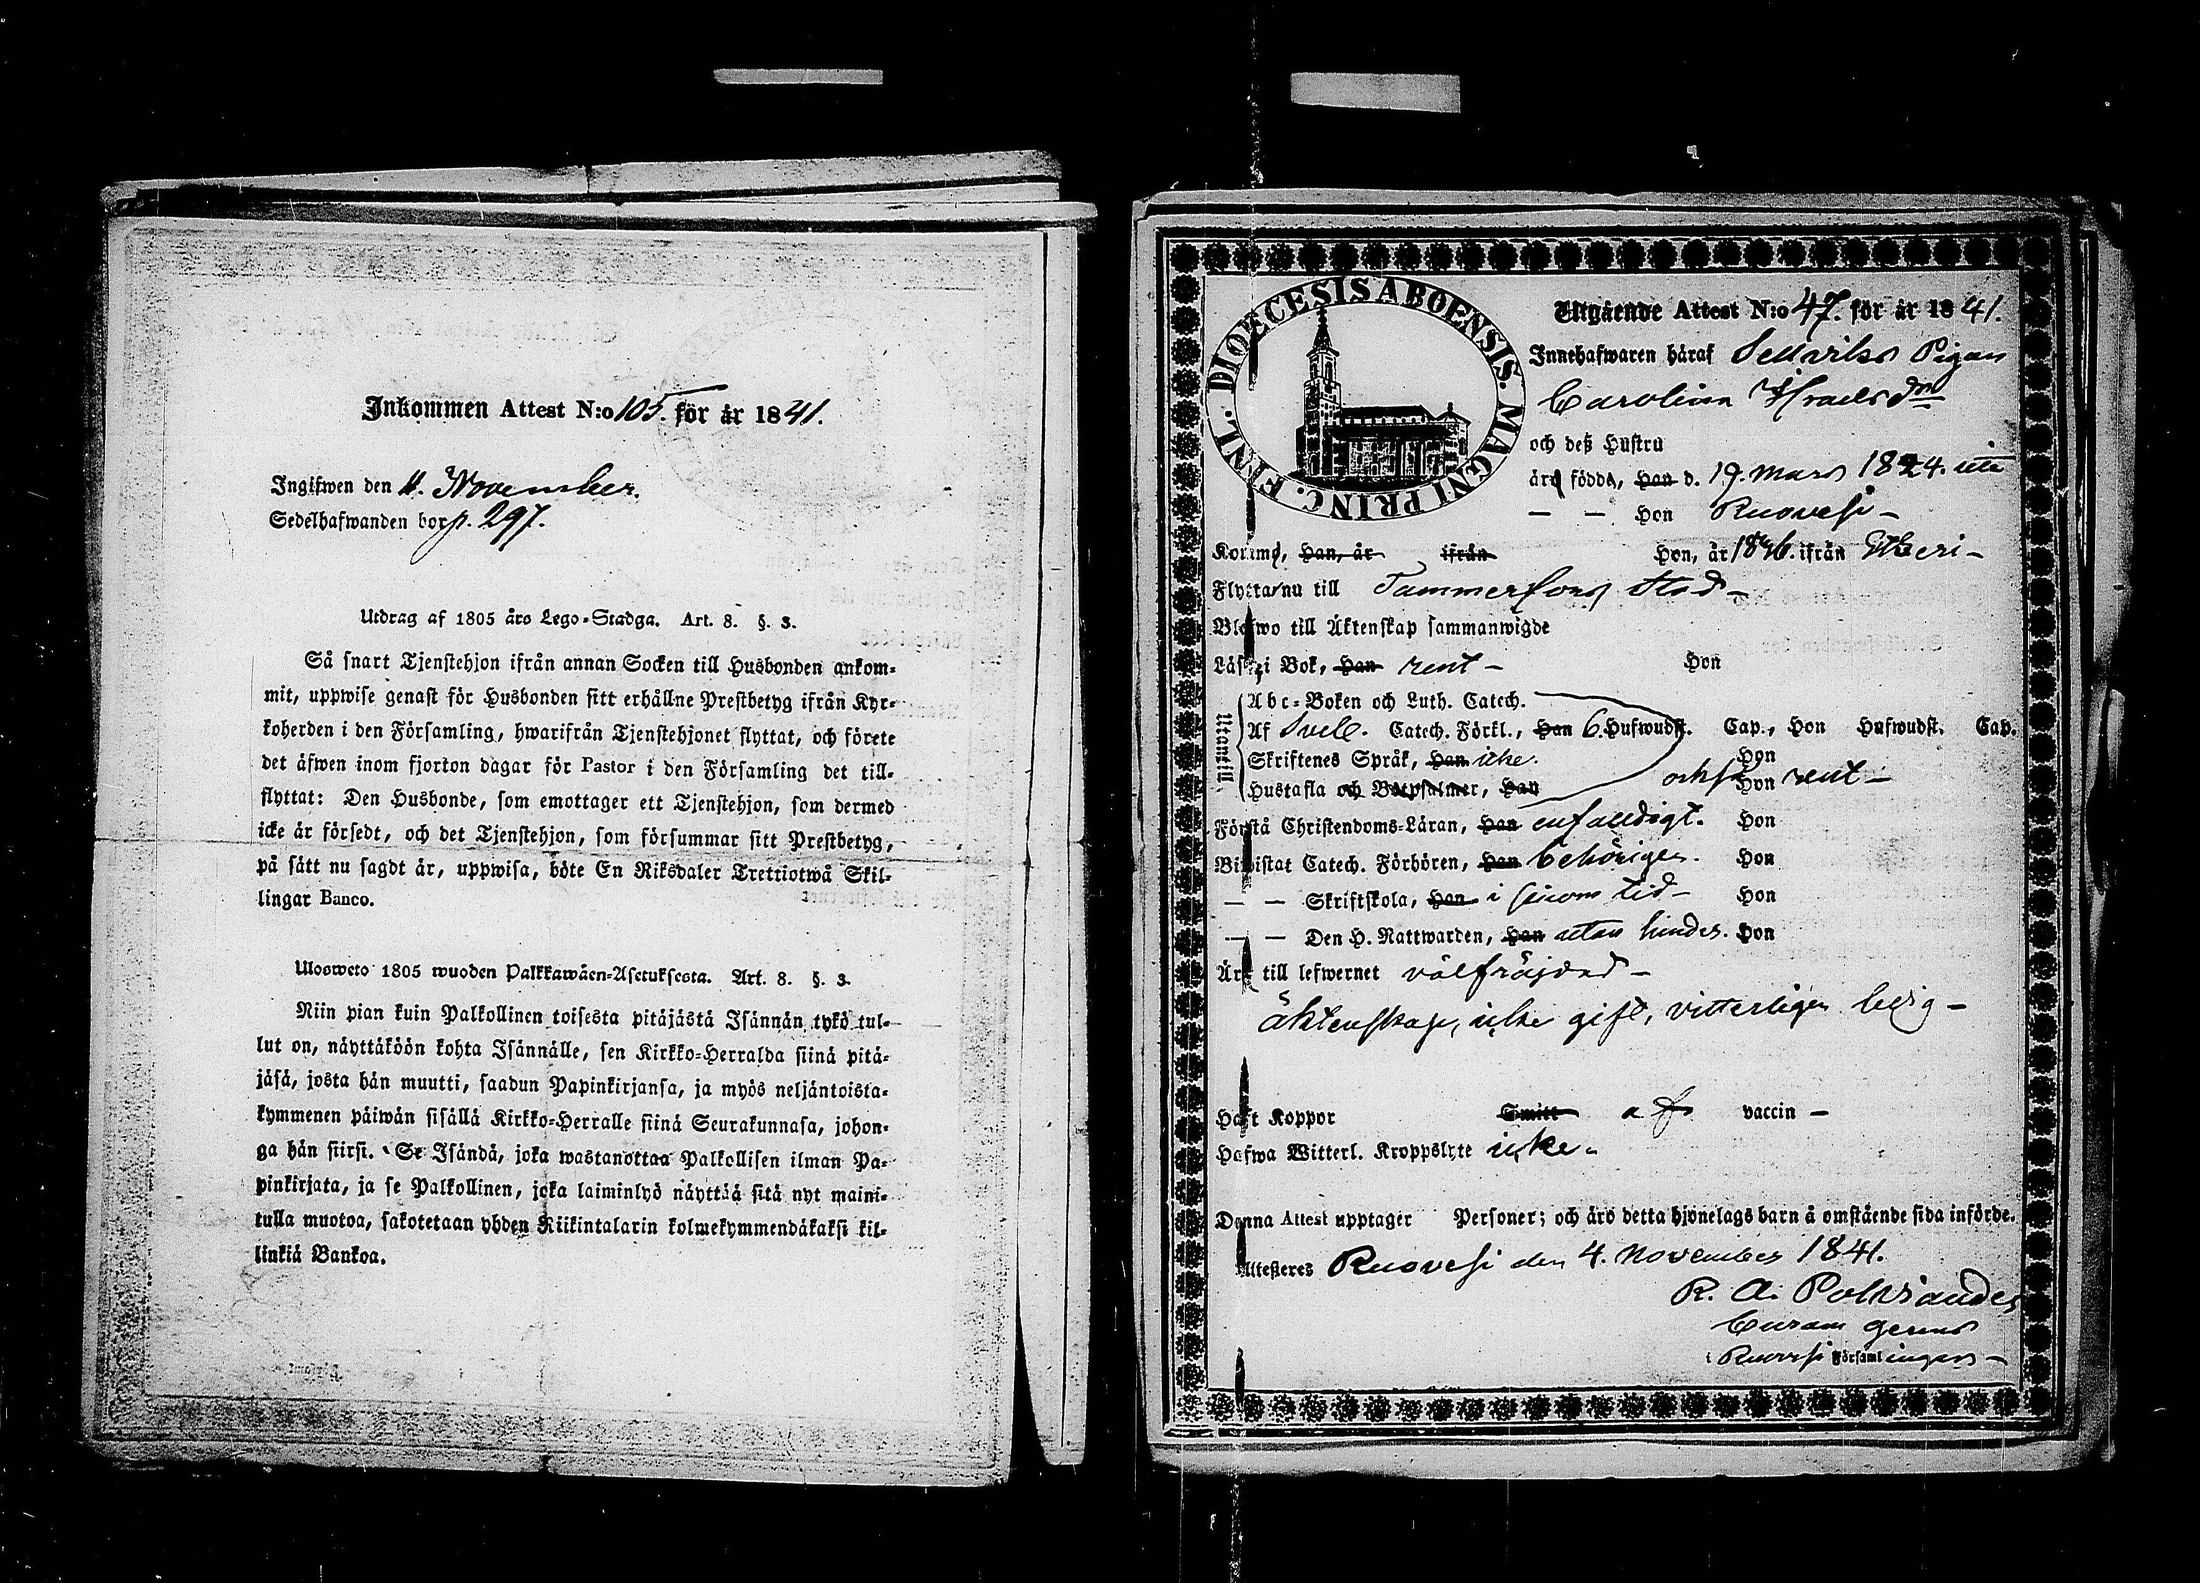 Inkommen Attest N:o 105. för år 1841.
Ingifwen den 11. November.
Sedelhafwanden bor p. 297.
Utdrag af 1805 års Lego-Stadga. Art. 8. §. 3.
Så snart Tjenstehjon ifrån annan Socken till Husbonden ankom-
mit, uppwise genast för Husbonden sitt erhållne Prestbetyg ifrån Kyr-
koherden i den Församling, hwarifrån Tjenstehjonet flyttat, och förete
det äfwen inom fjorton dagar för Pastor i den Församling det till-
flyttat: Den Husbonde, som emottager ett Tjenstehjon, som dermed
icke är försedt, och det Tjenstehjon, som försummar sitt Prestbetyg,
på sätt nu sagdt är, uppwisa, böte En Riksdaler Trettiotwå Skil-
lingar Banco.
Ulosweto 1805 wuoden Palkkawäen-Asetuksesta. Art. 8. §. 3.
Niin pian kuin Palkollinen toisesta pitäjästä Isännän tykö tul-
lut on, näyttäköön kohta Isännälle, sen Kirkko-Herralda siinä pitä-
jäsä, josta hän muutti, saadun Papinkirjansa, ja myös neljäntoista-
kymmenen päiwän sisällä Kirkko-Herralle siinä Seurakunnasa, johon-
ga hän siirsi. Se Isändä, joka wastanottaa Palkollisen ilman Pa-
pinkirjata, ja se Palkollinen, joka laiminlyö näyttää sitä nyt maini-
tulla muotoa, sakotetaan yhden Riikintalarin kolmekymmendäkaksi kil-
linkiä Bankoa.
DIOECESIS ABOENSIS. MAGNI PRINC. FINL.
Utgående Attest N:o 47. för år 1841.
Innehafwaren häraf Pigan
Carolina Israelsdr
och deß Hustru
äro födde, Han d. 19. Mars 1824. uti
— — Hon Ruovesi —
Kommo, Han, år ifrån Hon, år ifrån
Flytta nu till Tammerfors Stad —
Blefwo till Äktenskap sammanwigde
Läser i Bok, Han rent — Hon
Utantill
Abc-Boken och Luth. Catech.
Af Sveb. Catech. Förkl., Han 6. Hufwudst. Cap., Hon Hufwudst. Cap.
Skriftenes Språk, Han icke. Hon
Hustafla och Botpsalmer, Han också Hon rent —
Förstå Christendoms-Läran, Han enfaldigt. Hon
Biwistat Catech. Förhören, Han behörigen. Hon
— — Skriftskola, Han i sinom tid — Hon
— — Den H. Nattwarden, Han utan hinder. Hon
Äro till lefwernet välfräjdad —
äktenskap, icke gift, vitterligen ledig —
Haft Koppor Smitt af vaccin —
Hafwa Witterl. Kroppslyte icke.
Denna Attest upptager Personer; och äro detta hjonelags barn å omstående sida införde.
Attesteres Ruovesi den 4. November 1841.
R. A. Polviander
Curam gerens
i Ruovesi Församlingen —